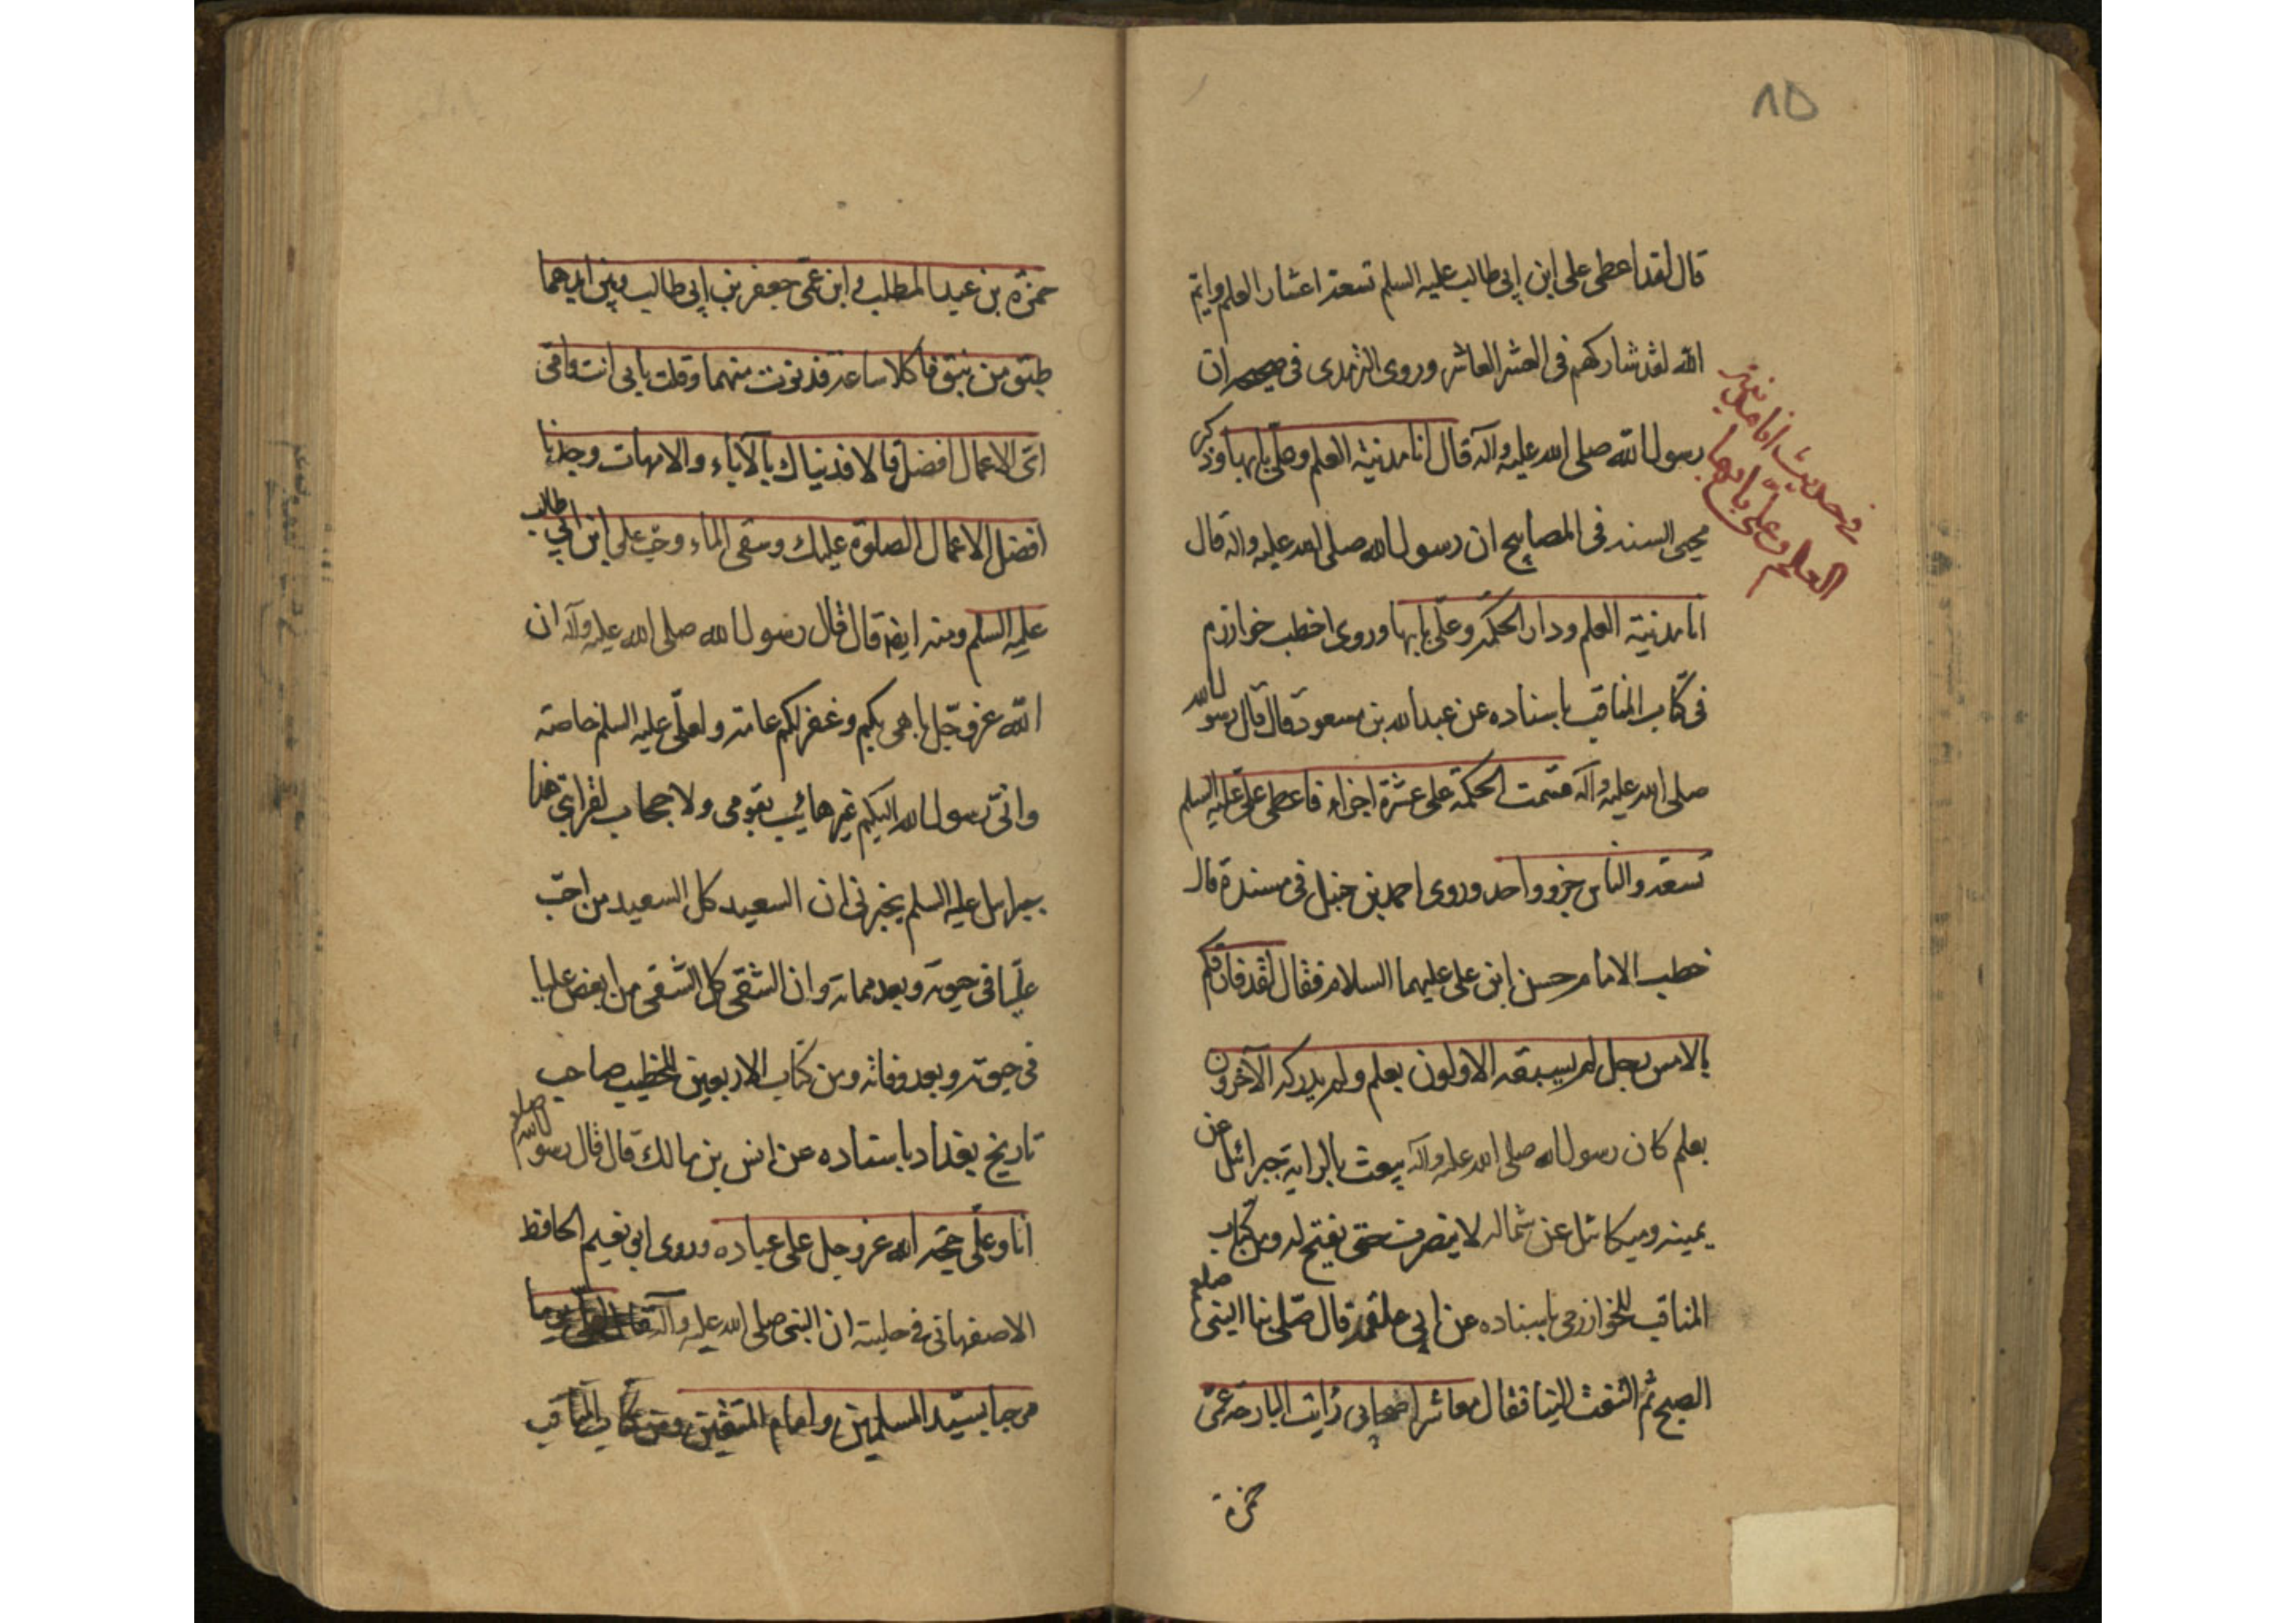 ٨٥
قال لقد اعطى على ابن ابى طالب عليه السلم تسعة اعشار العلم وايم
الله لقد شاركهم فى العشر العاشر وروى الترمدى فى صحيحه ان
رسول الله صلى الله عليه وآله قال انا مدنية العلم وعلى بابها وذكر
محيى السنه فى المصابيح ان رسول الله صلى الله عليه واله قال
انا مدنية العلم ودار الحكمة وعلى بابها وروى اخطب خوارزم
فى كتاب المناقب باسناده عن عبد الله بن مسعود قال قال رسول الله
صلى الله عليه وآله قسمت الحكمة على عشرة اجزاء فاعطى على عليه السلم
تسعة والناس جزو واحد وروى احمد بن حنبل فى مسنده قال
خطب الامام حسن ابن على عليهما السلام فقال لقد فارقكم
بالامس رجل لم يسبقه الاولون بعلم ولم يدركه الآخرون
بعلم كان رسول الله صلى الله عليه وآله يبعث بالراية جبرائيل عن
يمينه وميكائيل عن شماله لا ينصرف حتى يفتح له ومن كتاب
المناقب للخوارزمى باسناده عن ابى علقمة قال صلى بنا النبى صلعم
الصبح ثم التفت الينا فقال معاشر اصحابى رايت البارحة عمى
حمزة
فى حديث انا مدينة
العلم وعلى بابها
حمزة بن عبد المطلب وابن عمى جعفر بن ابى طالب وبين ايديهما
طبق من نبق فاكلا ساعة فدنوت منهما وقلت بابى انت وامى
اى الاعمال افضل قالا فديناك بالآباء والامهات وجدنا
افضل الاعمال الصلوة عليك وسقى الماء وحب على ابن ابى طالب
عليه السلم ومنه ايضا قال قال رسول الله صلى الله عليه وآله ان
الله عز وجل باهى بكم وغفر لكم عامة ولعلى عليه السلم خاصة
وانى رسول الله اليكم غير هائب بقومى ولا حجاب لقرابتى هذا
جبرايل عليه السلم يخبرنى ان السعيد كل السعيد من احب
عليا فى حيوته وبعد مماته وان الشقى كل الشقى من ابغض عليا
فى حيوته وبعد وفاته ومن كتاب الاربعين للخطيب صاحب
تاريخ بغداد باسناده عن انس بن مالك قال قال رسول الله صلعم
انا وعلى حجة الله عز وجل على عباده وروى ابى نعيم الحافظ
الاصفهانى فى حليته ان النبى صلى الله عليه وآله قال
مرحبا بسيد المسلمين وامام المتقين ومن كتاب المناقب